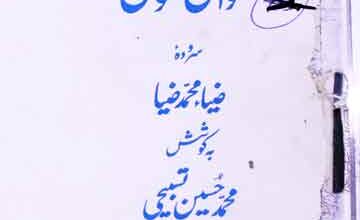 سرودهٔ
ضیاء محمد ضیا
بہ کوشش
محمد حسین تسبیحی